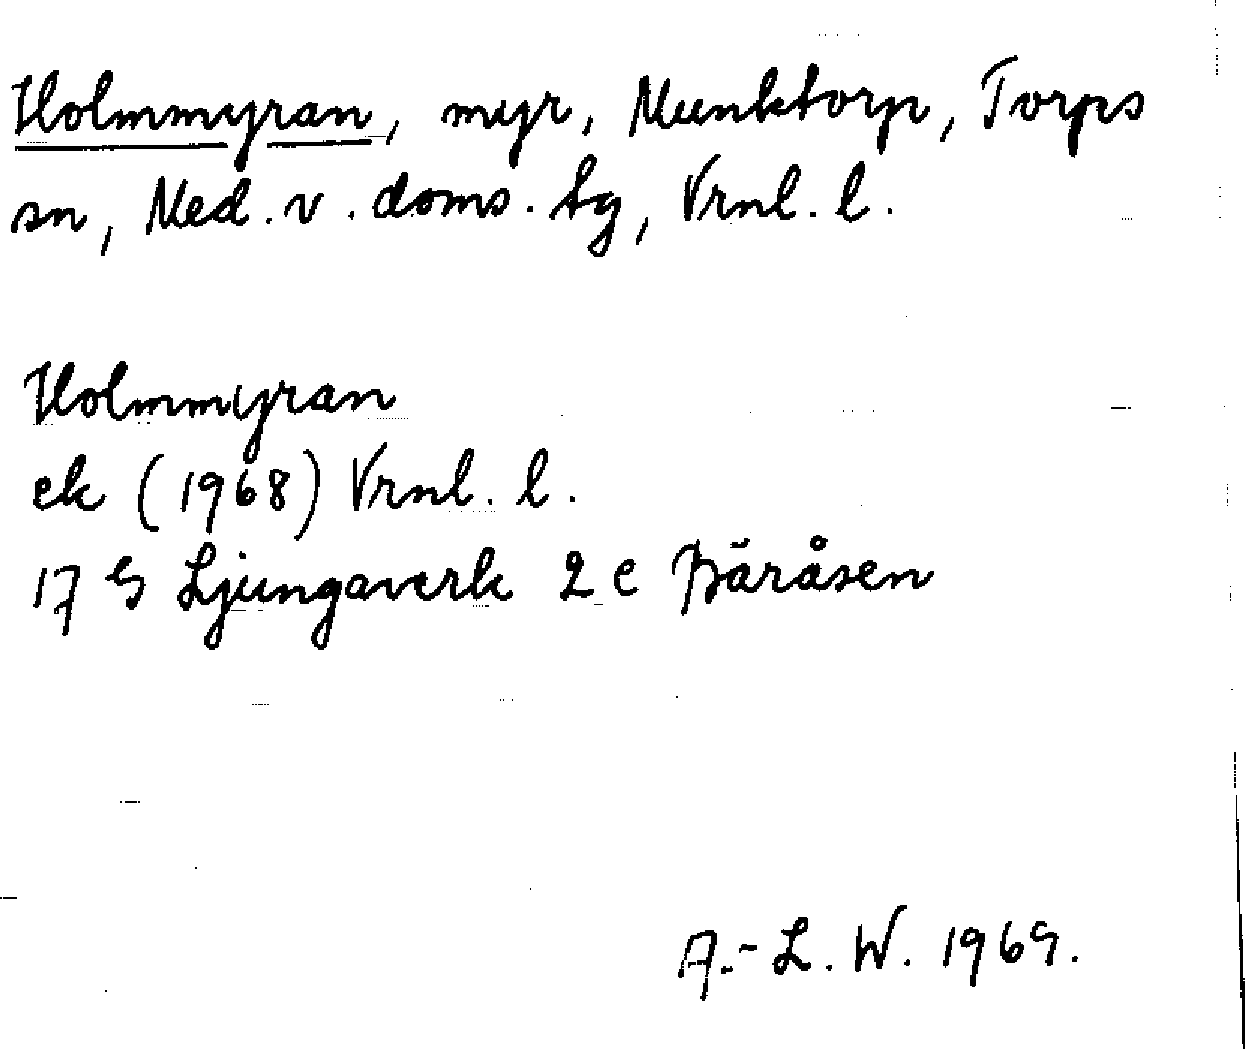 Holmmyran, myr, Munktorp, Torps
sn, Med. v. doms. tg, Vrnl. l.
Holmmyran
ek (1968) Vrnl. l.
17 G Ljungaverk 2 c Bäråsen
A.-L. W. 1969.